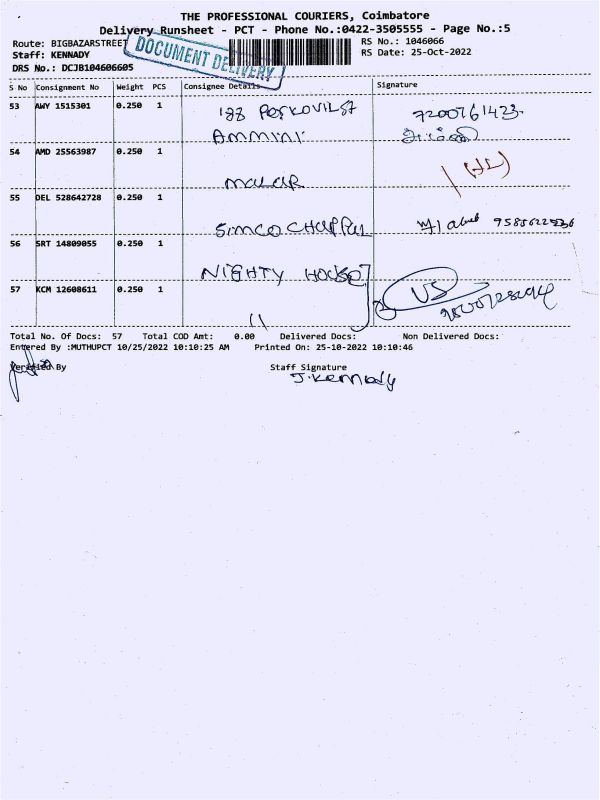 THE PROFESSIONAL COURIERS, Coimbatore
Delivery Runsheet - PCT - Phone No.:0422-3505555 - Page No.:5
Route: BIGBAZARSTREET
RS No.: 1046066
Staff: KENNADY
RS Date: 25-Oct-2022
DRS No.: DCJB104606605
DOCUMENT DELIVERY
S No Consignment No Weight PCS Consignee Details Signature
53 AWY 1515301 0.250 1 122 PERKOVIL ST 7200761423
AMMINI அம்மணி
54 AMD 25563987 0.250 1
MALAR
55 DEL 528642728 0.250 1
SIMCO CHAPPAL
56 SRT 14809055 0.250 1
NIGHTY HOUSE
57 KCM 12608611 0.250 1 US
11
Total No. Of Docs: 57 Total COD Amt: 0.00 Delivered Docs: Non Delivered Docs:
Entered By :MUTHUPCT 10/25/2022 10:10:25 AM Printed On: 25-10-2022 10:10:46
Verified By Staff Signature
J. Kennady